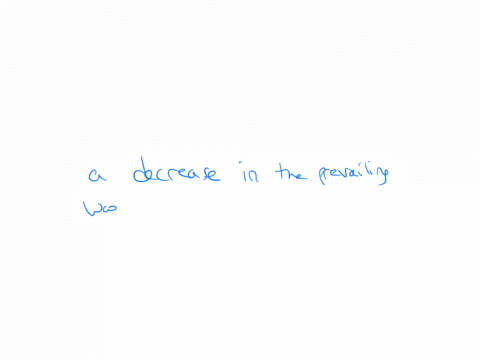 a decrease in the prevailing